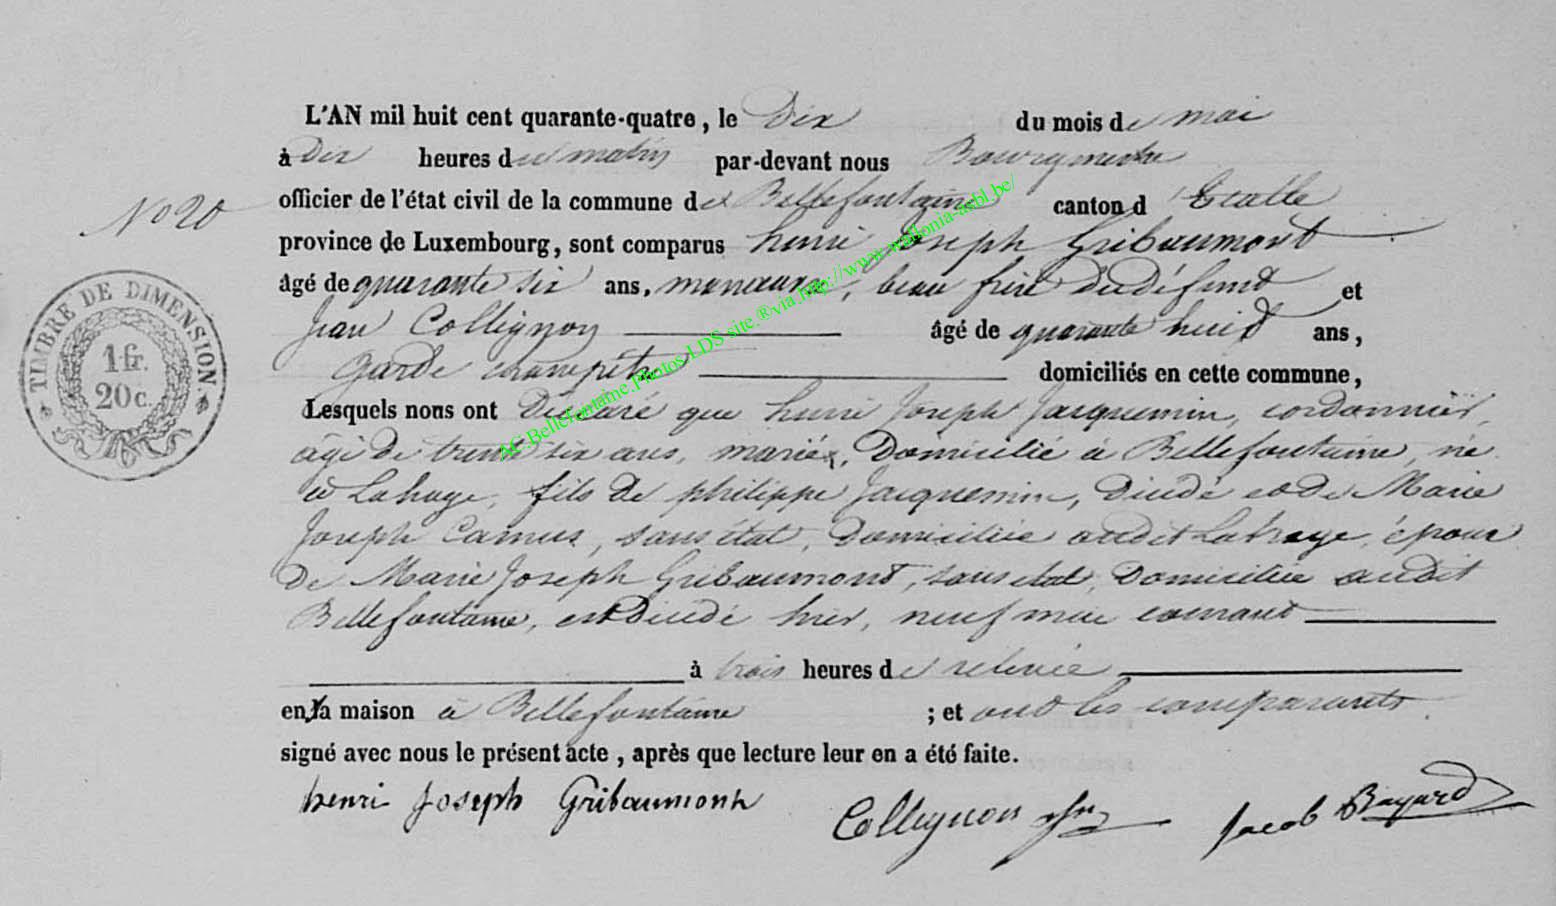 L'AN mil huit cent quarante-quatre, le Dix du mois de mai
à Dix heures du matin par-devant nous Bourgmestre
officier de l'état civil de la commune de Bellefontaine canton d'Etalle
No 20
province de Luxembourg, sont comparus henri Joseph Gribaumont
âgé de quarante six ans, manœuvre, beau frère du défunt et
Jean Collignon âgé de quarante huit ans,
garde champêtre domiciliés en cette commune,
TIMBRE DE DIMENSION
1 fr.
20 c.
Lesquels nous ont Déclaré que henri Joseph Jacquemin, cordonnier,
âgé de trente six ans, marié, Domicilié à Bellefontaine, né
à Lahage, fils de philippe Jacquemin, Dicédé et de Marie
Joseph Camus, sans état, Domiciliée audit Lahage, époux
De Marie Joseph Gribaumont, sans état, Domiciliée audit
Bellefontaine, est Dicédé hier, neuf mai courant
à trois heures de relevée
en sa maison à Bellefontaine ; et ont les comparants
signé avec nous le présent acte, après que lecture leur en a été faite.
henri Joseph Gribaumont Collignon Jn Jacob Bayard
AC-Bellefontaine.Photos.LDS site.®via.http://www.wallonia-asbl.be/